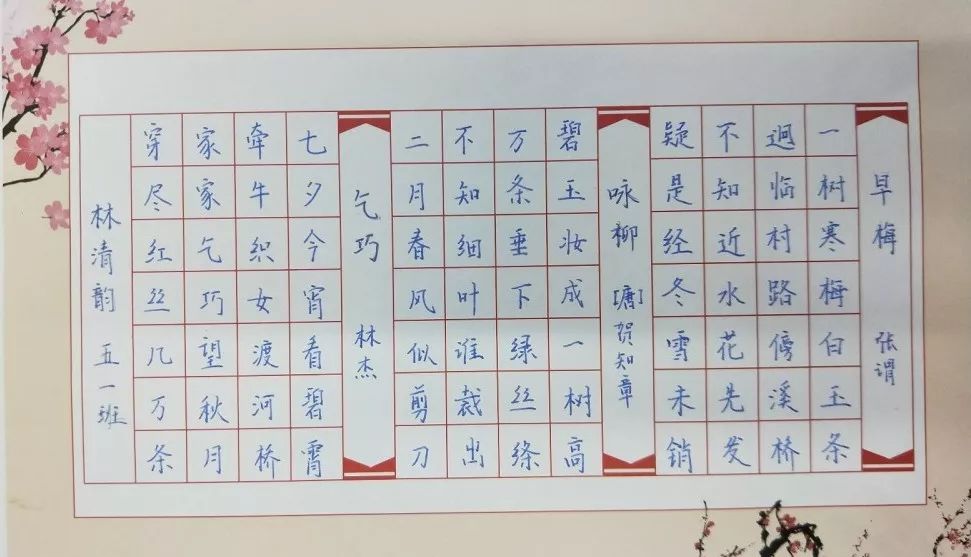 早梅 张谓
一树寒梅白玉条
迥临村路傍溪桥
不知近水花先发
疑是经冬雪未销
咏柳 [唐]贺知章
碧玉妆成一树高
万条垂下绿丝绦
不知细叶谁裁出
二月春风似剪刀
乞巧 林杰
七夕今宵看碧霄
牵牛织女渡河桥
家家乞巧望秋月
穿尽红丝几万条
林清韵 五一班